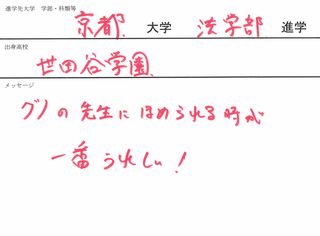 進学先大学 学部・科類等
京都 大学 法学部 進学
出身高校
世田谷学園
メッセージ
グノの先生にほめられる時が
一番うれしい!